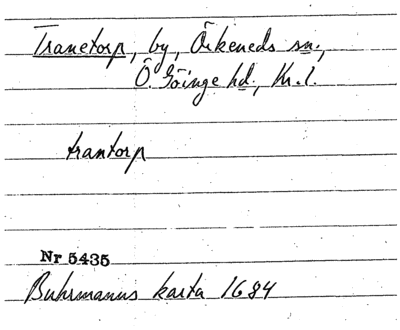 Tranetorp, by, Örkeneds sn.,
Ö. Göinge hd., Kr. l.
trantorp
Nr 5435
Buhrmanns karta 1684